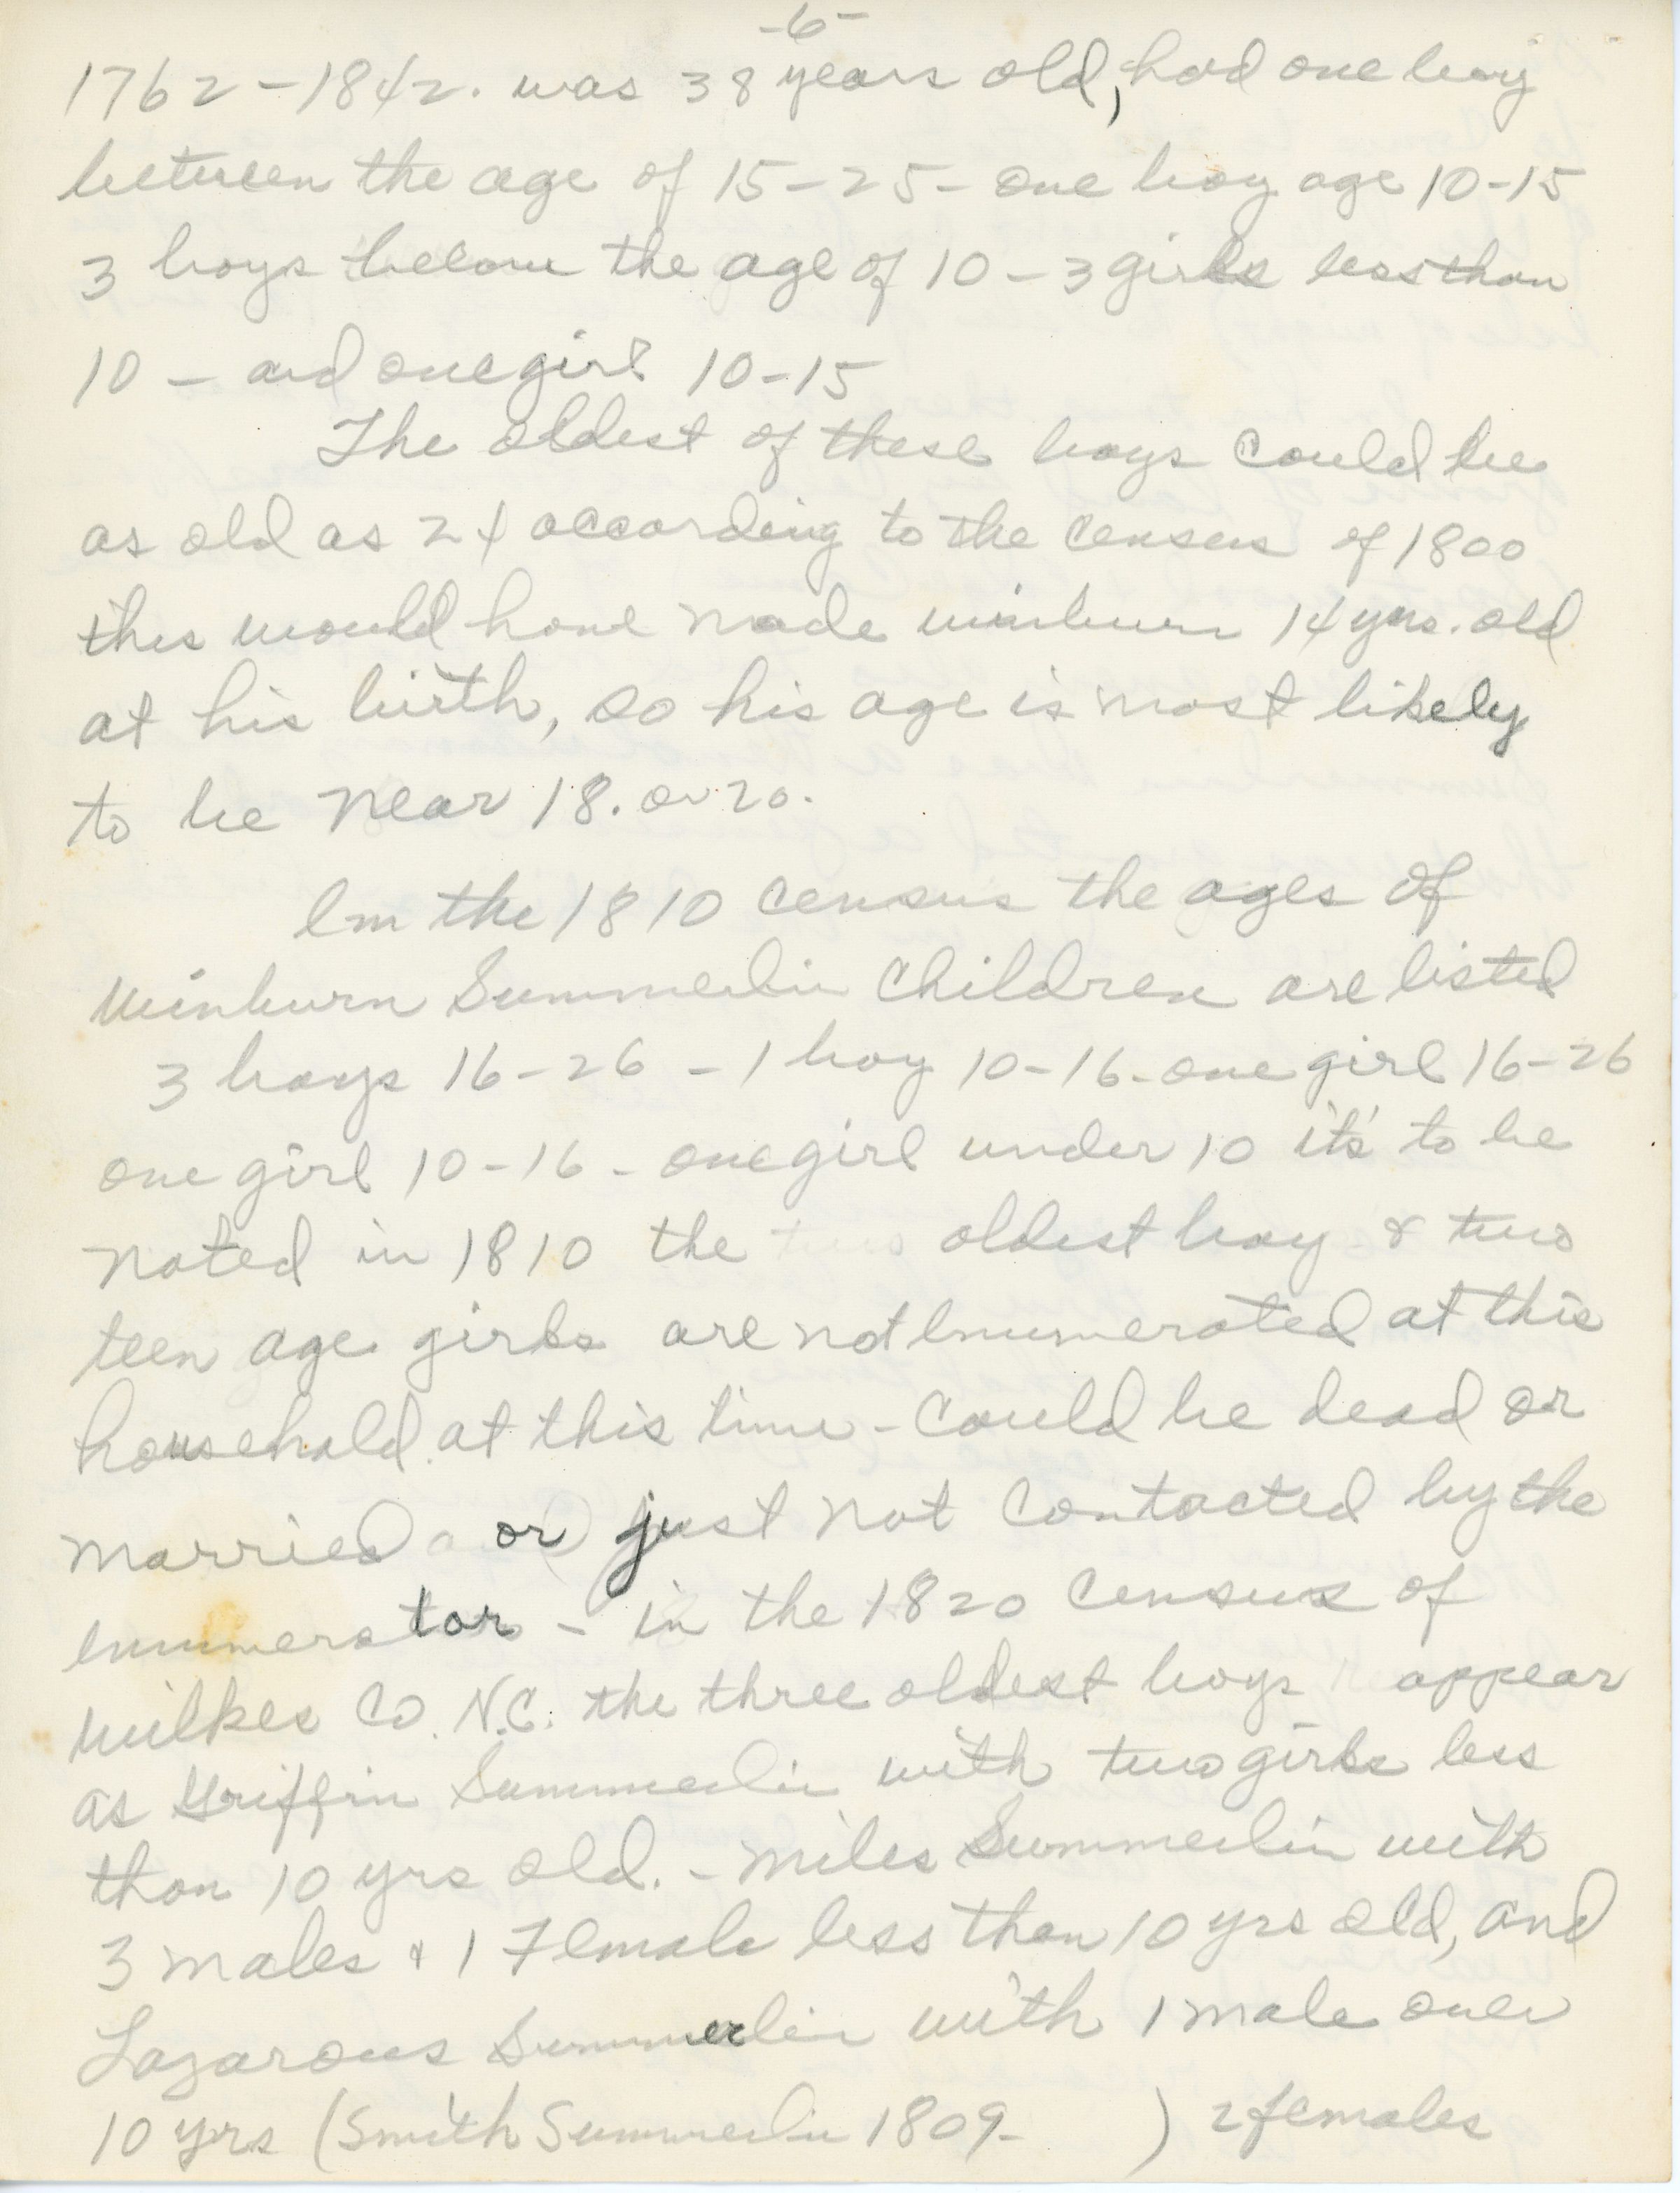 -6-
1762-1842. was 38 years old, had one boy
between the age of 15-25- one boy age 10-15
3 boys below the age of 10 - 3 girls less than
10 - and one girl 10-15
The oldest of these boys could be
as old as 24 according to the census of 1800
this would have made winburn 14 yrs. old
at his birth, so his age is most likely
to be near 18. or 20.
Im the 1810 census the ages of
Winburn Summerlin Children are listed
3 boys 16-26 - 1 boy 10-16- one girl 16-26
one girl 10-16 - one girl under 10 it's to be
noted in 1810 the two oldest boy & two
teen age girls are not Enumerated at this
household. at this time - Could be dead or
married or just not Contacted by the
enumerator - in the 1820 Census of
Wilkes Co. N.C. the three oldest boys appear
as Griffin Summerlin with two girls less
than 10 yrs old. - Miles Summerlin with
3 males & 1 Female less than 10 yrs old, and
Lazarous Summerlin with 1 male over
10 yrs (Smith Summerlin 1809- ) 2 females